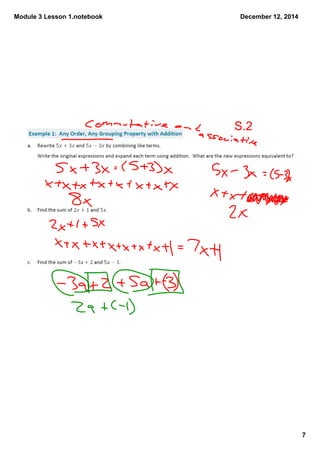 Module 3 Lesson 1.notebook
December 12, 2014
Commutative and associative
S.2
Example 1: Any Order, Any Grouping Property with Addition
a. Rewrite 5x + 3x and 5x − 3x by combining like terms.
Write the original expressions and expand each term using addition. What are the new expressions equivalent to?
5x + 3x = (5+3)x
x+x+x+x+x+x+x+x
8x
5x − 3x = (5-3)x
x+x+
2x
b. Find the sum of 2x + 1 and 5x.
2x+1+5x
x+x+x+x+x+x+x+1 = 7x+1
c. Find the sum of −3a + 2 and 5a − 3.
-3a+2+5a+(-3)
2a+(-1)
7